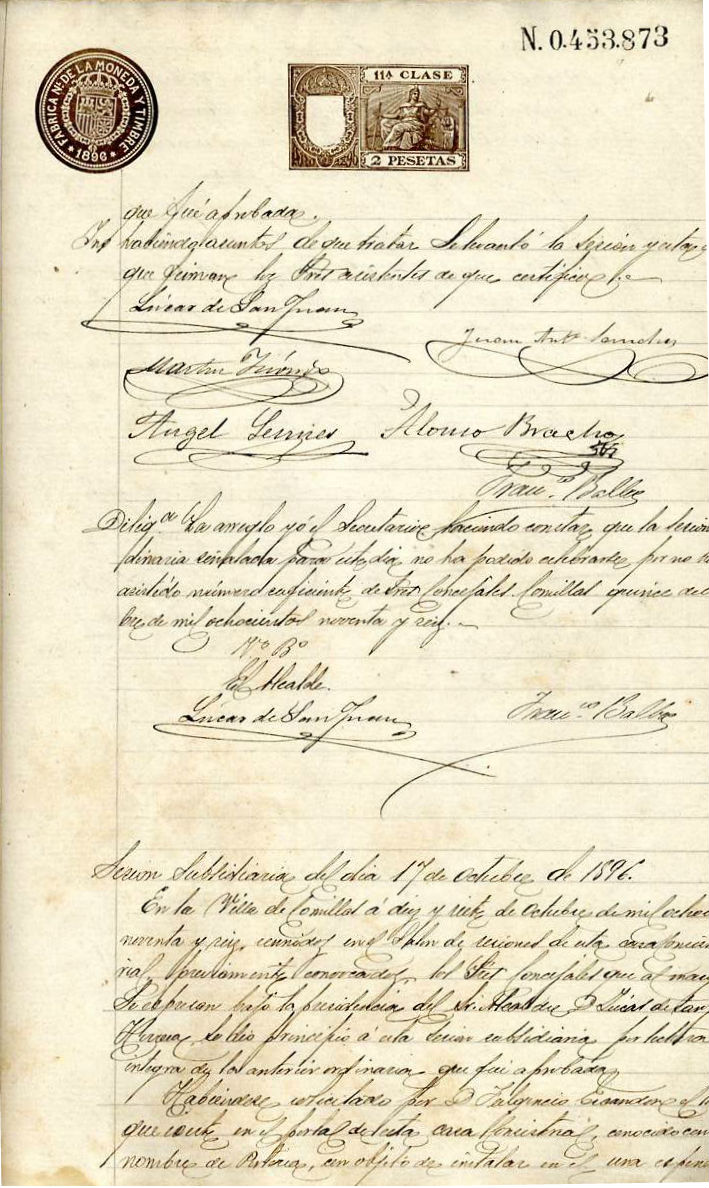 N. 0.453.873
FABRICA Nl. DE LA MONEDA Y TIMBRE
* 1896 *
11ª CLASE
2 PESETAS
que fué aprobada.
habiendo asuntos de que tratar se levantó la sesión y
que firman los Sres asistentes de que certifico.
Lúcas de San Juan
Juan Anto. Sanchez
Martin
Angel Alonso Bracho
Franco. Balbas
Diliga. La arreglo yó el Secretario haciendo constar que la sesion
dinaria señalada para este dia no ha podido celebrarse por no
asistido número suficiente de Sres Concejales. Comillas quince de
bre de mil ochocientos noventa y seis.
Vo. Bo
El Alcalde.
Lúcas de San Juan
Franco. Balbas
Sesion subsidiaria del dia 17 de octubre de 1896.
En la Villa de Comillas á diez y siete de octubre de mil ochoc
noventa y seis, reunidos en el Salon de sesiones de esta casa
rial, previamente convocados, los Sres Concejales que al mar
se espresan bajo la presidencia del Sr. Alcalde D. Lúcas de San
Herrera, se dió principio á esta sesion subsidiaria por lectura
integra de la anterior ordinaria que fué aprobada.
Habiendose solicitado por D. Fulgencio el
que existe en el portal de esta casa Consistorial, conocido con
nombre de con objeto de instalar en él una